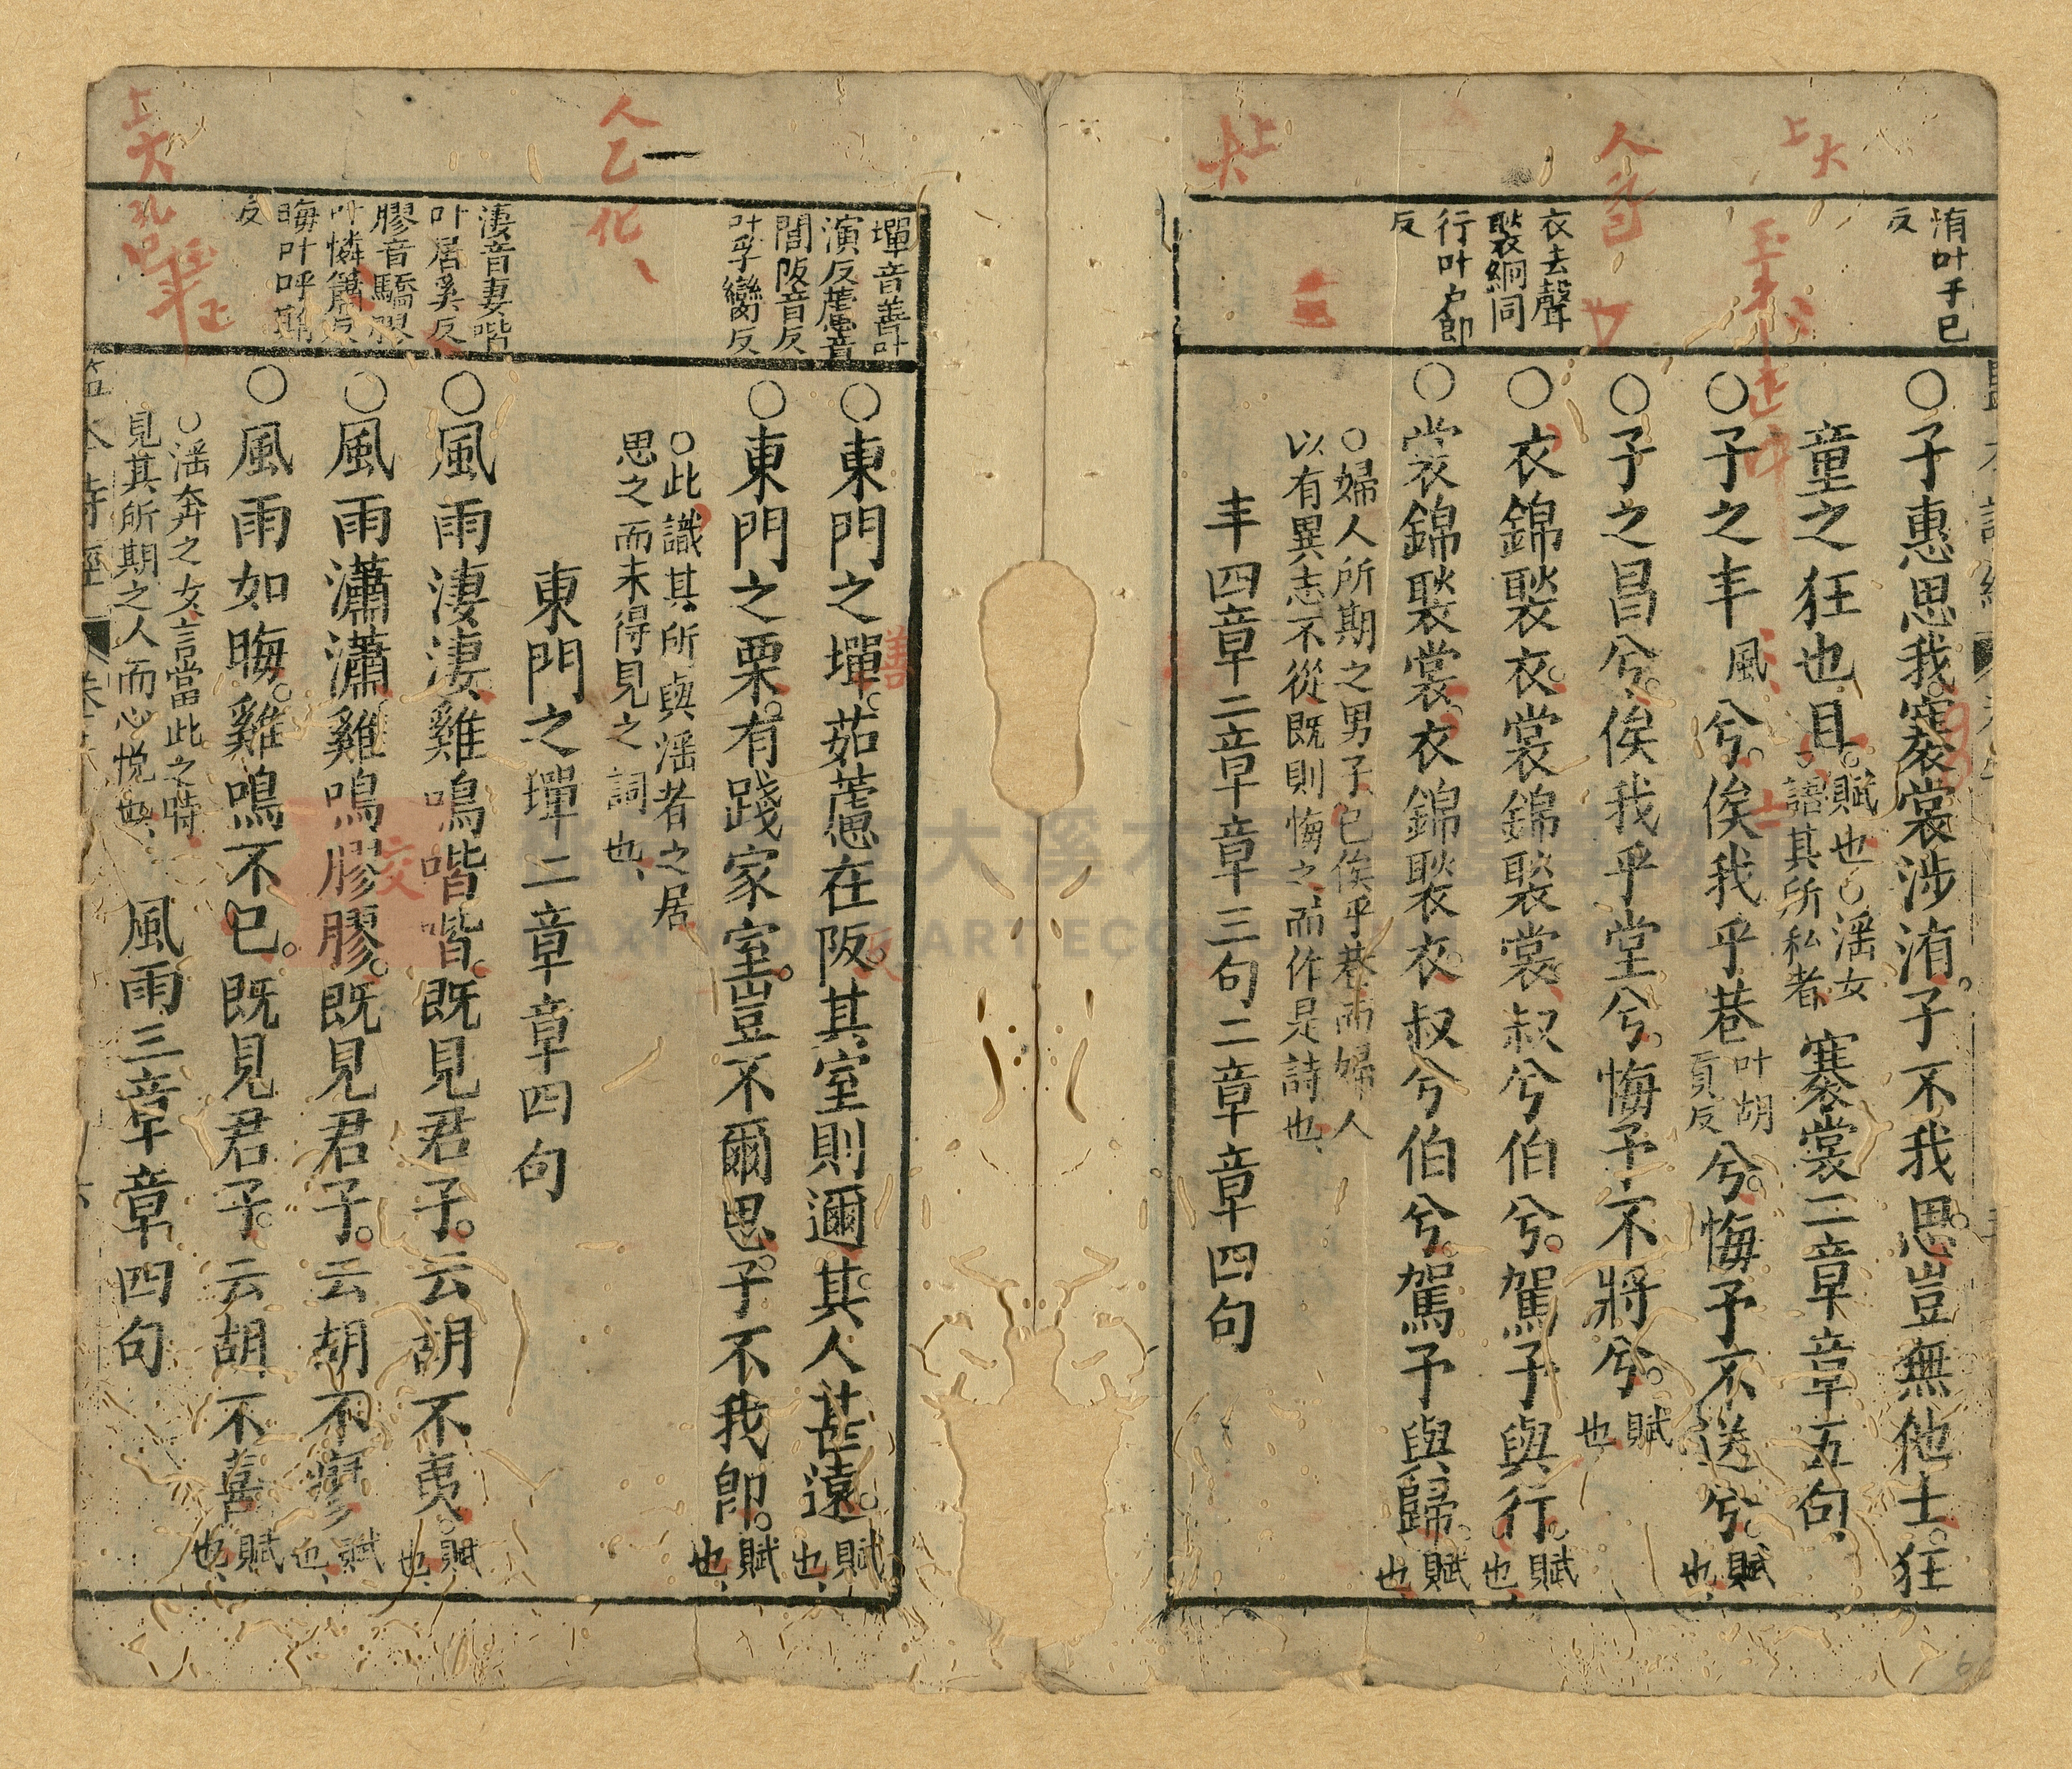 洧叶于已
反
○子惠思我褰裳涉洧子不我思豈無他士狂
童之狂也且賦也○淫女
語其所私者褰裳二章章五句
○子之丰風兮俟我乎巷叶胡
貢反兮悔予不送兮賦
也
○子之昌兮俟我乎堂兮悔予不將兮賦
也
衣去聲
褧絅同
行叶戶郎
反
○衣錦褧衣裳錦褧裳叔兮伯兮駕予與行賦
也
○裳錦褧裳衣錦褧衣叔兮伯兮駕予與歸賦
也
○婦人所期之男子已俟乎巷而婦人
以有異志不從既則悔之而作是詩也
丰四章二章章三句二章章四句
墠音善叶
演反藘音
閭阪音反
叶孚臠反
○東門之墠茹藘在阪其室則邇其人甚遠賦
也
○東門之栗有踐家室豈不爾思子不我即賦
也
○此識其所與淫者之居
思之而未得見之詞也
東門之墠二章章四句
淒音妻喈
叶居奚反
膠音驕膠
叶憐蕭反
晦叶呼洧
反
○風雨淒淒雞鳴喈喈既見君子云胡不夷賦
也
○風雨瀟瀟雞鳴膠膠既見君子云胡不瘳賦
也
○風雨如晦雞鳴不已既見君子云胡不喜賦
也
○淫奔之女言當此之時
見其所期之人而心悅也 風雨三章章四句